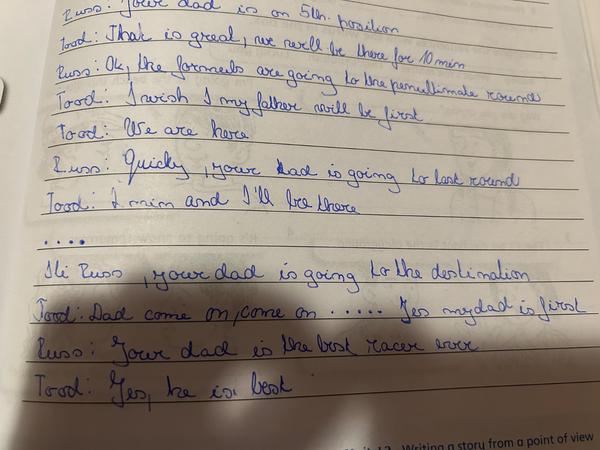 Russ: Your dad is on 5th. position
Tood: That is great, we will be there for 10 min
Russ: Ok, the are going to the penultimate round
Tood: I wish I my father will be first
Tood: We are here
Russ: Quicky, your dad is going to last round
Tood: 1 min and I'll be there
....
Hi Russ, your dad is going to the destination
Tood: Dad come on, come on ..... Yes my dad is first
Russ: Your dad is the best racer ever
Tood: Yes, he is best
12 Writing a story from a point of view